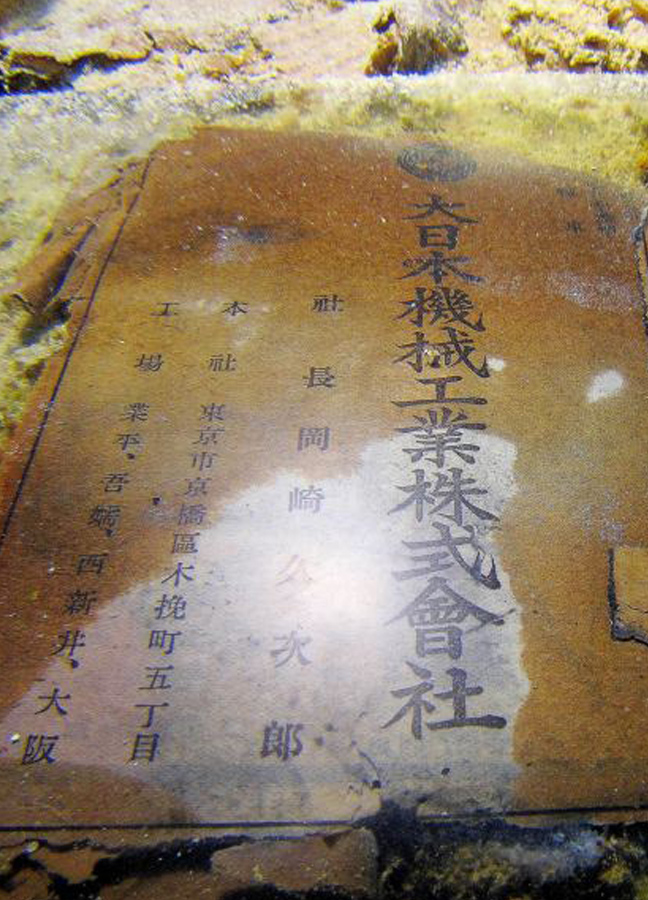 大日本機械工業株式會社
社長 岡崎久次郎
本社 東京市京橋區木挽町五丁目
工場 業平、吾嬬、西新井、大阪